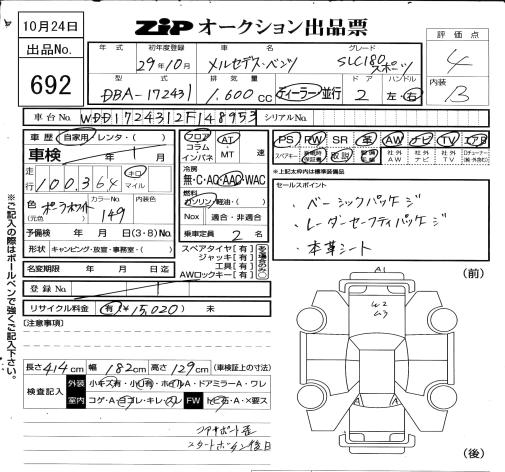 10月24日
出品No.
692
ZiP オークション出品票
評価点
4
内装
B
年式 初年度登録 車名 グレード
29年10月 メルセデス・ベンツ SLC180 スポーツ
型式 排気量 ドア ハンドル
DBA-172431 1,600cc ディーラー・並行 2 左・右
車台No. WDD1724312F148953 シリアルNo.
車歴 自家用・レンタ・( )
車検 年 月
1
走行 100,364 キロ マイル
色 (元色) ポーラホワイト カラーNo. 149 内装色
予備検 年 月 日(3・8)No.
形状 キャンピング・放宣・事務室・( )
名変期限 年 月 日迄
登録No.
リサイクル料金 有(¥15,020) 未
[注意事項]
フロア コラム インパネ AT MT 速
冷房 無・C・AC・AAC・WAC
燃料 ガソリン・軽油・( )
Nox 適合・非適合
乗車定員 2 名
スペアタイヤ[有]
ジャッキ[有]
工具[有]
AWロックキー[有]
ある場合のみ〇
PS PW SR 革 AW ナビ TV エアB
スペアキー 保証書 取説 記録簿 社外AW 社外ナビ 社外TV
*上記太枠内は標準装備品
セールスポイント
・ベーシックパッケージ
・レーダーセーフティパッケージ
・本革シート
(前)
A1
U2
U3
(後)
長さ 414cm 幅 182cm 高さ 129cm (車検証上の寸法)
検査記入 外装 小キズ有・小凹有・ホイルA・ドアミラーA・ワレ
室内 コゲ・A・ヨゴレ・キレ・スレ FW トビ石・A・×要ス
スタートボタン
※ご記入の際はボールペンで強くご記入下さい。